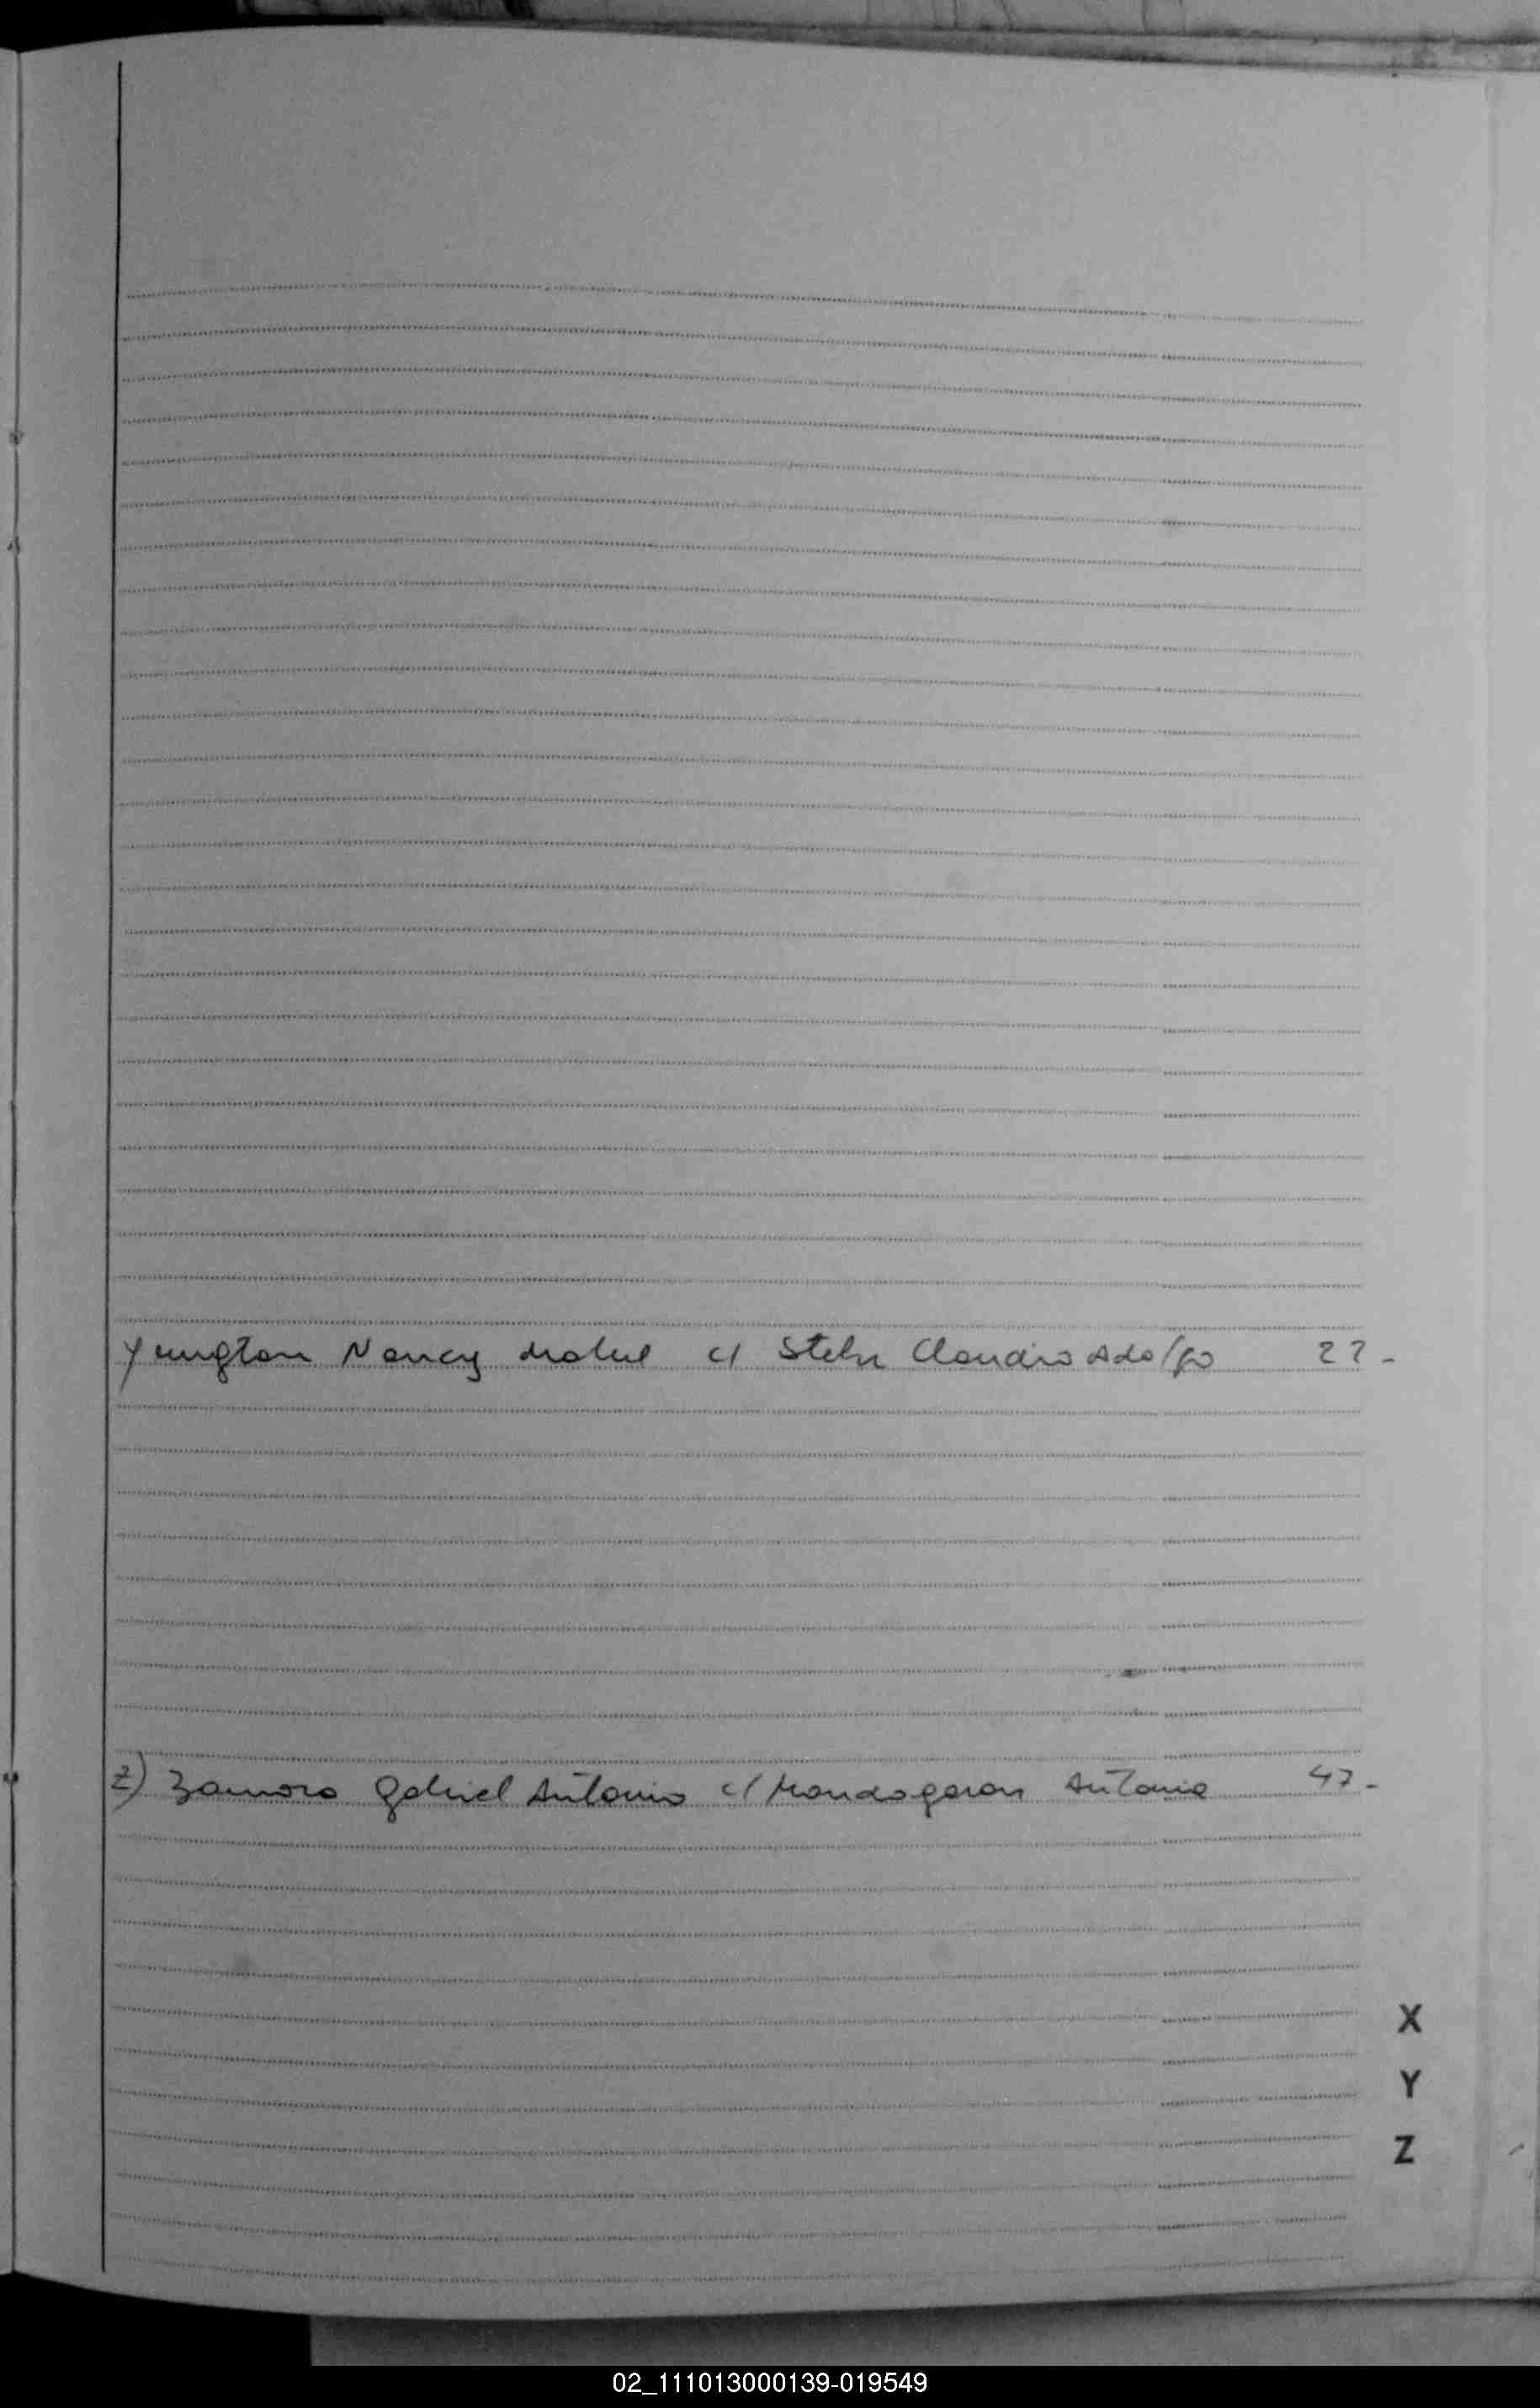 Yungton Nancy Mabel c/ Steln Claudio Adolfo 22-
Z) Zamora Gabriel Antonio c/ Mondogaron Antonia 47-
X
Y
Z
02_111013000139-019549